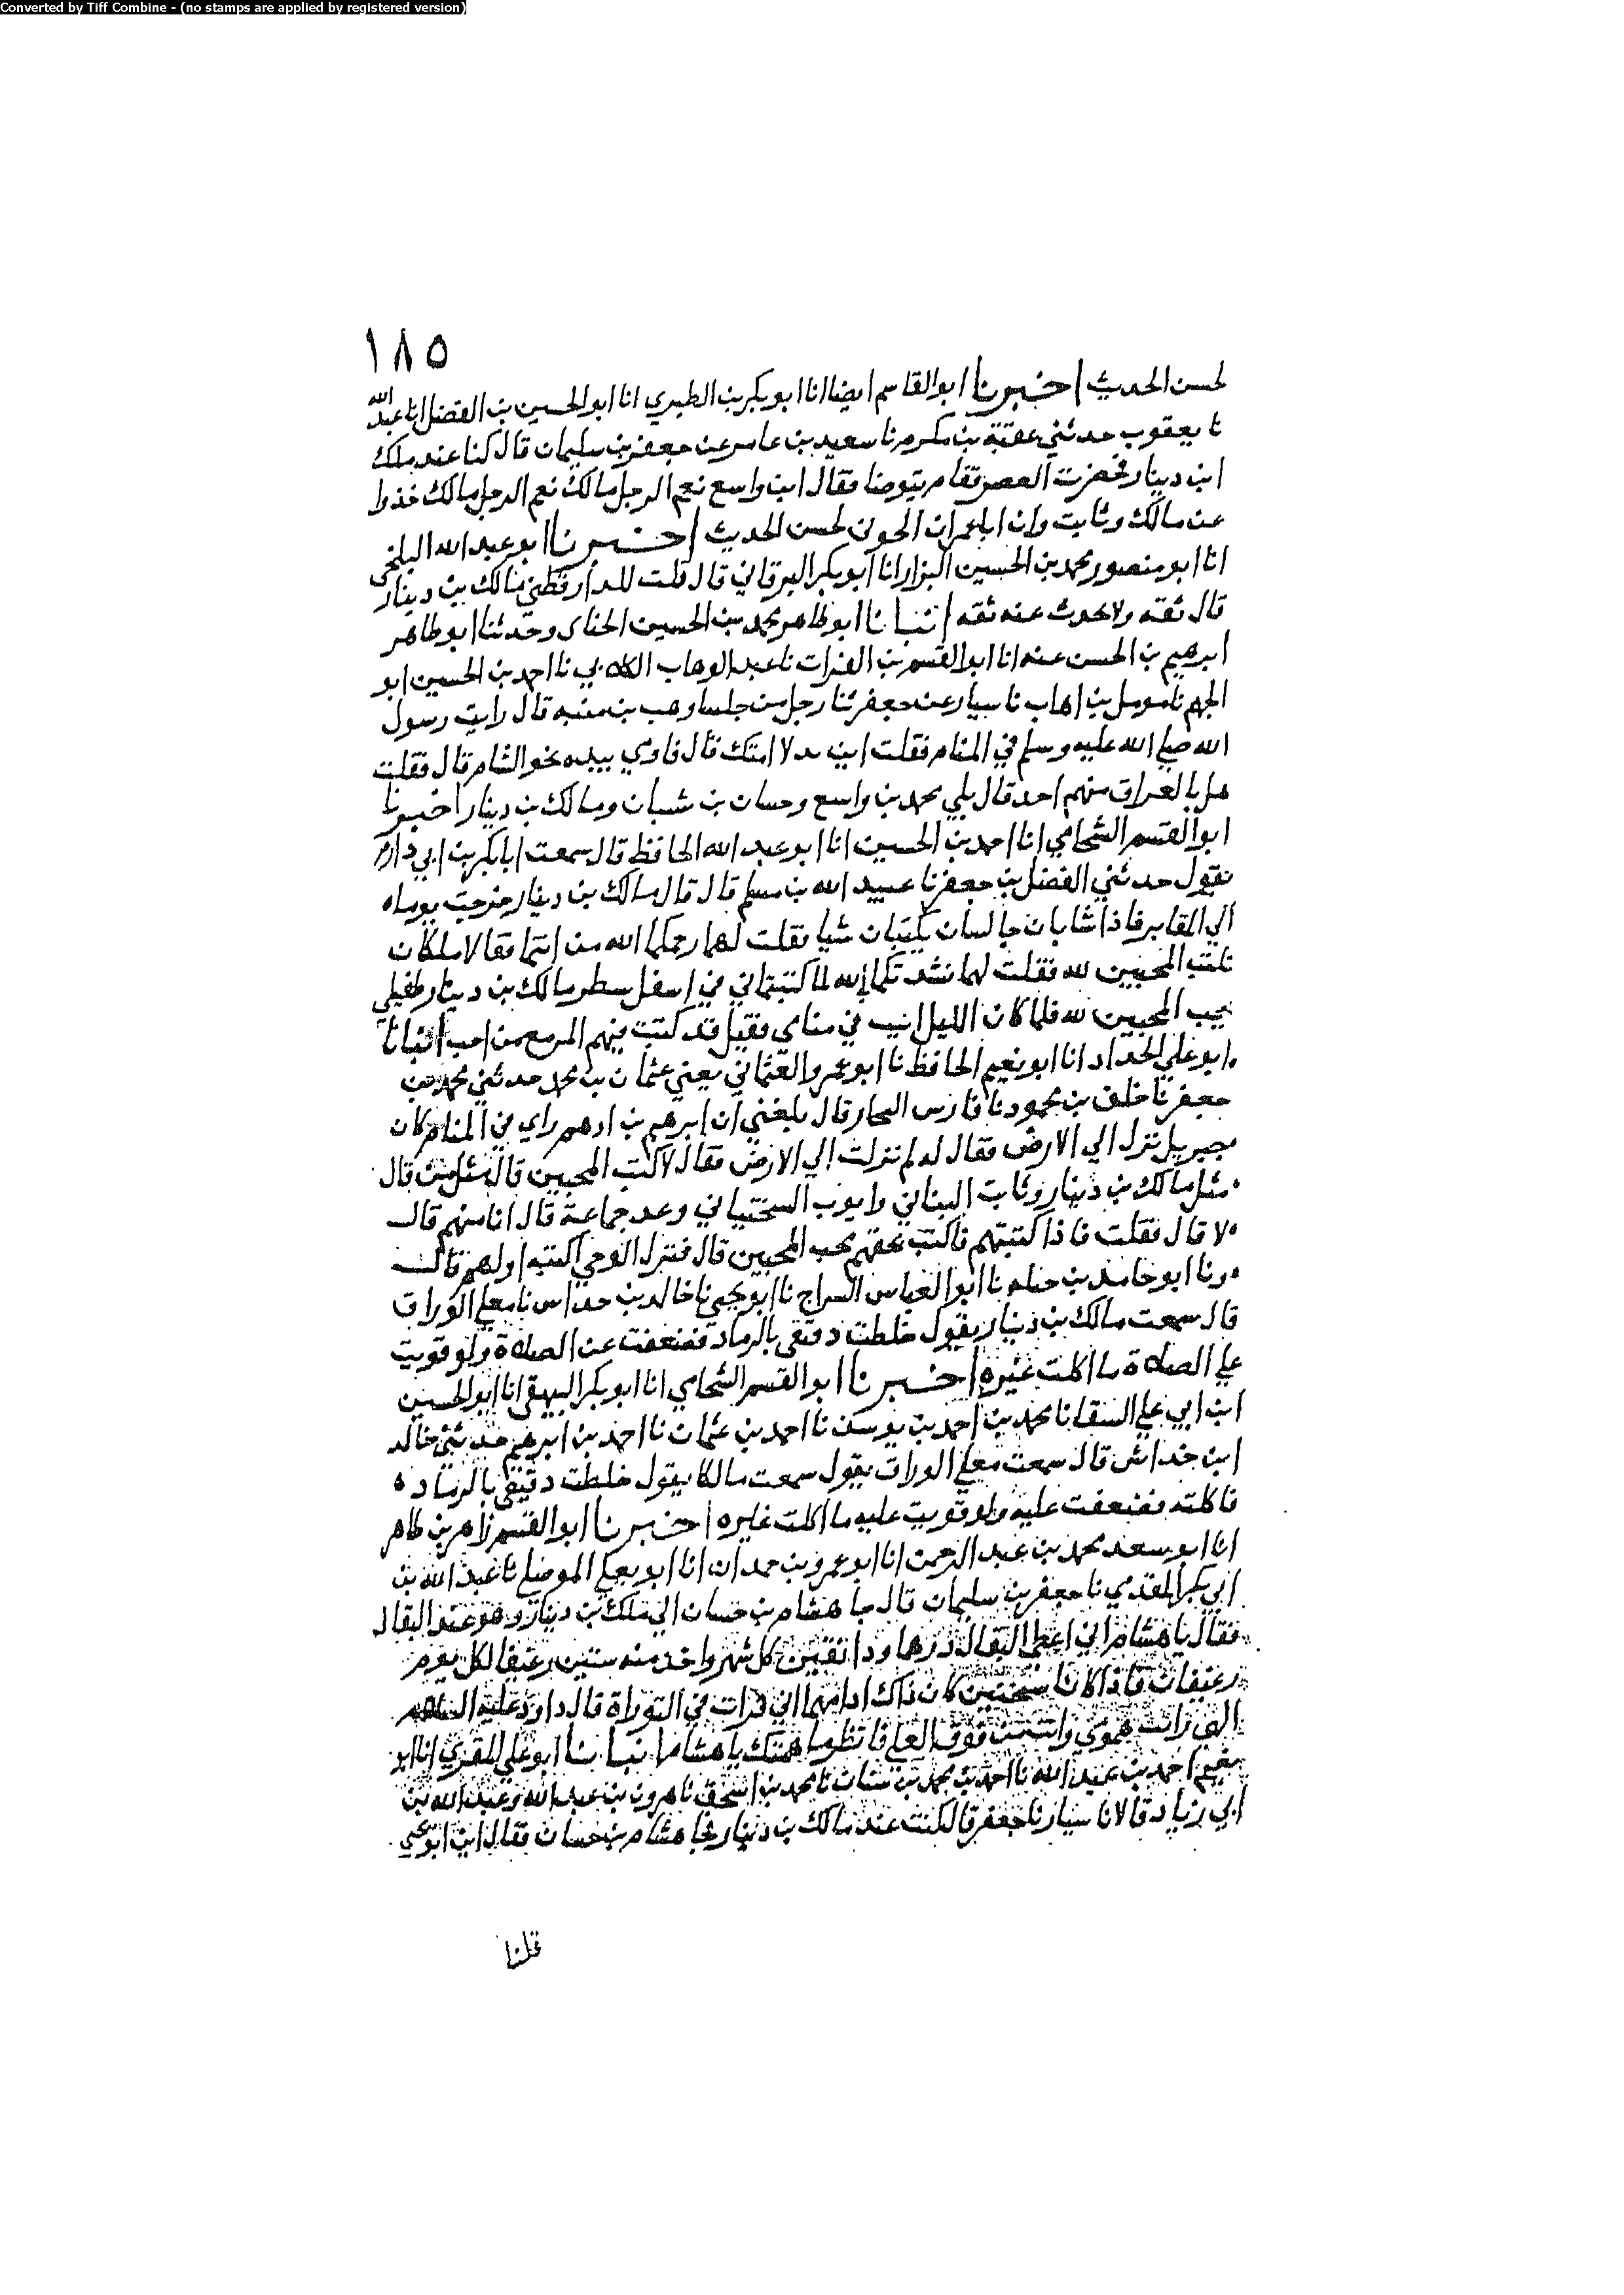 Converted by Tiff Combine - (no stamps are applied by registered version)
١٨٥
لحسن الحديث اخبرنا ابو القاسم ايضا انا ابو بكر بن الطبري انا ابو الحسين بن الفضل انا عبد الله
نا يعقوب حدثني عقبة بن مكرم نا سعيد بن عامر عن جعفر بن سليمان قال كنا عند ملك
ابن دينار فحضرت العصر فقام يتوضا فقال ابن واسع نعم الرجل مالك نعم الرجل مالك خذوا
عن مالك وثابت وان ابا عمران الجوني لحسن الحديث اخبرنا ابو عبد الله البلخي
انا ابو منصور محمد بن الحسين البزار انا ابو بكر البرقاني قال قلت للدارقطني مالك بن دينار
قال ثقه ولا يحدث عنه ثقه انبانا ابو طاهر محمد بن الحسين الحناى وحدثنا ابو طاهر
ابرهيم بن الحسن عنه انا ابو القسم بن الفرات نا عبد الوهاب الكلابي نا احمد بن الحسين ابو
الجهم نا مومل بن اهاب نا سيار عن جعفر نا رجل من جلسا وهب بن منبه قال رايت رسول
الله صلي الله عليه وسلم في المنام فقلت اين بدلا امتك قال فاومي بيده نحو الشام قال فقلت
هل بالعراق منهم احد قال بلي محمد بن واسع وحسان بن سنان ومالك بن دينار اخبرنا
ابو القسم الشحامي انا احمد بن الحسين انا ابو عبد الله الحافظ قال سمعت ابا بكر بن ابي دارم
يقول حدثني الفضل بن جعفر نا عبيد الله بن مسلم قال قال مالك بن دينار خرجت يوما
الي المقابر فاذا شابان جالسان يكتبان شيا فقلت لهما رحمكما الله من انتما فقالا ملكان
نكتب المحبين لله فقلت لهما نشدتكما بالله لما كتبتماني في اسفل سطر مالك بن دينار طفيلي
يحب المحبين لله فلما كان الليل اتيت في منامى فقيل قد كتبت فيهم المرء مع من احب انبانا
ابو علي الحداد انا ابو نعيم الحافظ نا ابو عمرو العثماني يعني عثمان بن محمد حدثني محمد بن
جعفر نا خلف بن محمود نا فارس النجار قال بلغني ان ابرهيم بن ادهم راي في المنام كان
جبريل نزل الي الارض فقال له لم نزلت الي الارض فقال لاكتب المحبين قال مثل من قال
مثل مالك بن دينار وثابت البناني وايوب السختياني وعد جماعة قال انا منهم قال
لا قال فقلت فاذا كتبتهم فاكتب تحتهم محب المحبين قال فنزل الوحي اكتبه اولهم قال
ونا ابو حامد بن جبله نا ابو العباس السراج نا ابو يحيى نا خالد بن خداش نا معلي الوراق
قال سمعت مالك بن دينار يقول خلطت دقيقي بالرماد فضعفت عن الصلاة ولو قويت
علي الصلاة ما اكلت غيره اخبرنا ابو القسم الشحامي انا ابو بكر البيهقي انا ابو الحسين
ابن ابي علي السقا نا محمد بن احمد بن يوسف نا احمد بن عثمان نا احمد بن ابرهيم حدثني خالد
ابن خداش قال سمعت معلي الوراق يقول سمعت مالكا يقول خلطت دقيقي بالرماد
فاكلته فضعفت عليه ولو قويت عليه ما اكلت غيره اخبرنا ابو القسم زاهر بن طاهر
انا ابو سعد محمد بن عبد الرحمن انا ابو عمرو بن حمدان انا ابو يعلي الموصلي نا عبد الله بن
ابي بكر المقدمي نا جعفر بن سليمان قال جا هشام بن حسان الي ملك بن دينار وهو عند البقال
فقال يا هشام اني اعطي البقال درهما ودانقين كل شهر واخذ منه ستين رغيفا لكل يوم
رغيفان فاذا كانا سخنين كان ذاك ادامهما اني قرات في التوراة قال داود عليه السلام
الهي رايت همومي وانت من فوق العلي فانظر ما همتك يا هشام انبانا ابو علي المقري انا ابو
نعيم احمد بن عبد الله نا احمد بن محمد بن سنان نا محمد بن اسحق نا هرون بن عبد الله وعبد الله بن
ابي زياد قالا نا سيار نا جعفر قال كنت عند مالك بن دينار فجا هشام بن حسان فقال اين ابو يحيى
قلنا